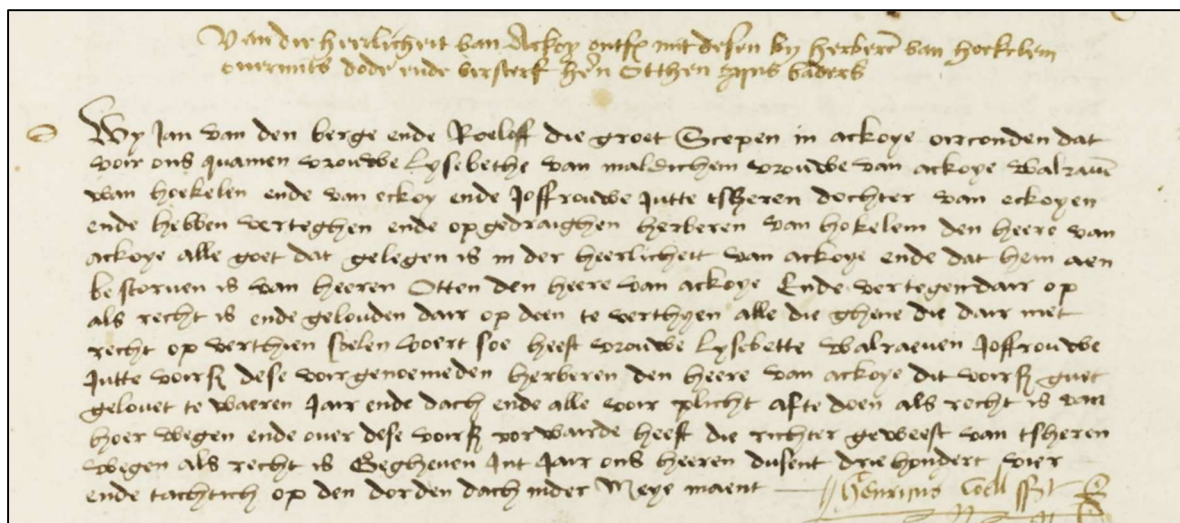 Van die heerlicheit van Ackoy ontfn mit desen by herberē van hoeckelem
overmits dode ende versterf hern Otthen zijns vaders
Wy Jan van den berge ende Roeloff die groet Scepen in ackoye oirconden dat
voir ons quamen vrouwe Lysebethe van maldichem vrouwe van ackoye walravē
van hoekelen ende van eckoy ende Joffrouwe Jutte tsheren dochter van eckoyen
ende hebben verteghen ende opgedraighen herberen van hokelem den heere van
ackoye alle goet dat gelegen is in der heerlicheit van ackoye ende dat hem aen
bestorven is van heeren Otten den heere van ackoye Ende vertegen dair op
als recht is ende gelouden dair op doen te verthyen alle die ghene die dair met
recht op verthien soelen voert soe heeft vrouwe Lysebette walraeven Joffrouwe
Jutte voirs dese voirgenoemeden herberen den heere van ackoye dit voirs guet
gelovet te waeren Jair ende dach ende alle voir plicht afte doen als recht is van
hoer wegen ende over dese voirs vorwairde heeft die richter geweest van tsheren
wegen als recht is Gegheven Int Jair ons heeren dusent driehondert vier
ende tachtich op den dorden dach inder Meye maent